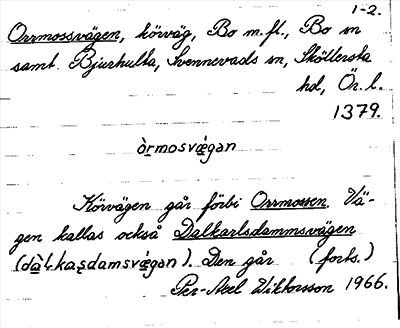 1-2.
Orrmossvägen, körväg, Bo m.fl., Bo sn
samt Bjurhulta, Svennevads sn, Sköllersta
hd, Ör. l.
1379.
òrmosvæ̀gan
Körvägen går förbi Orrmossen. Vä-
gen kallas också Dalkarlsdammsvägen
(dàlkaṣdamsvæ̀gan). Den går (forts.)
Per-Axel Wiktorsson 1966.